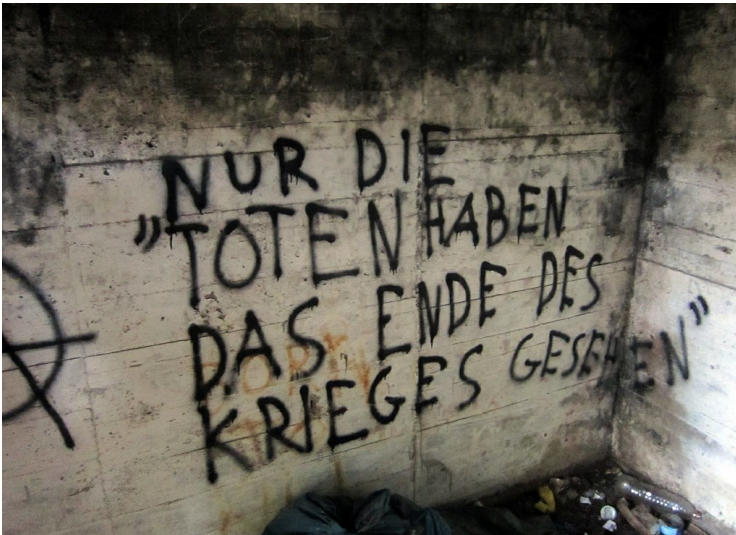 NUR DIE
"TOTEN HABEN
DAS ENDE DES
KRIEGES GESEHEN"